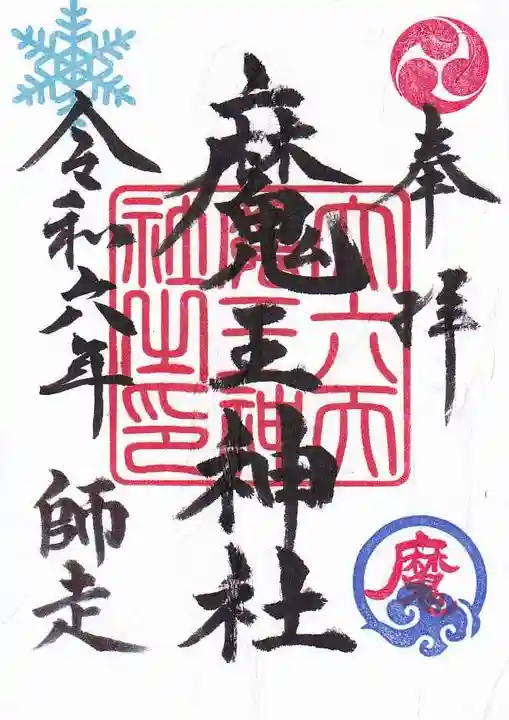 奉拝
魔王神社
大六天
魔王神
社之印
令和六年
師走
魔